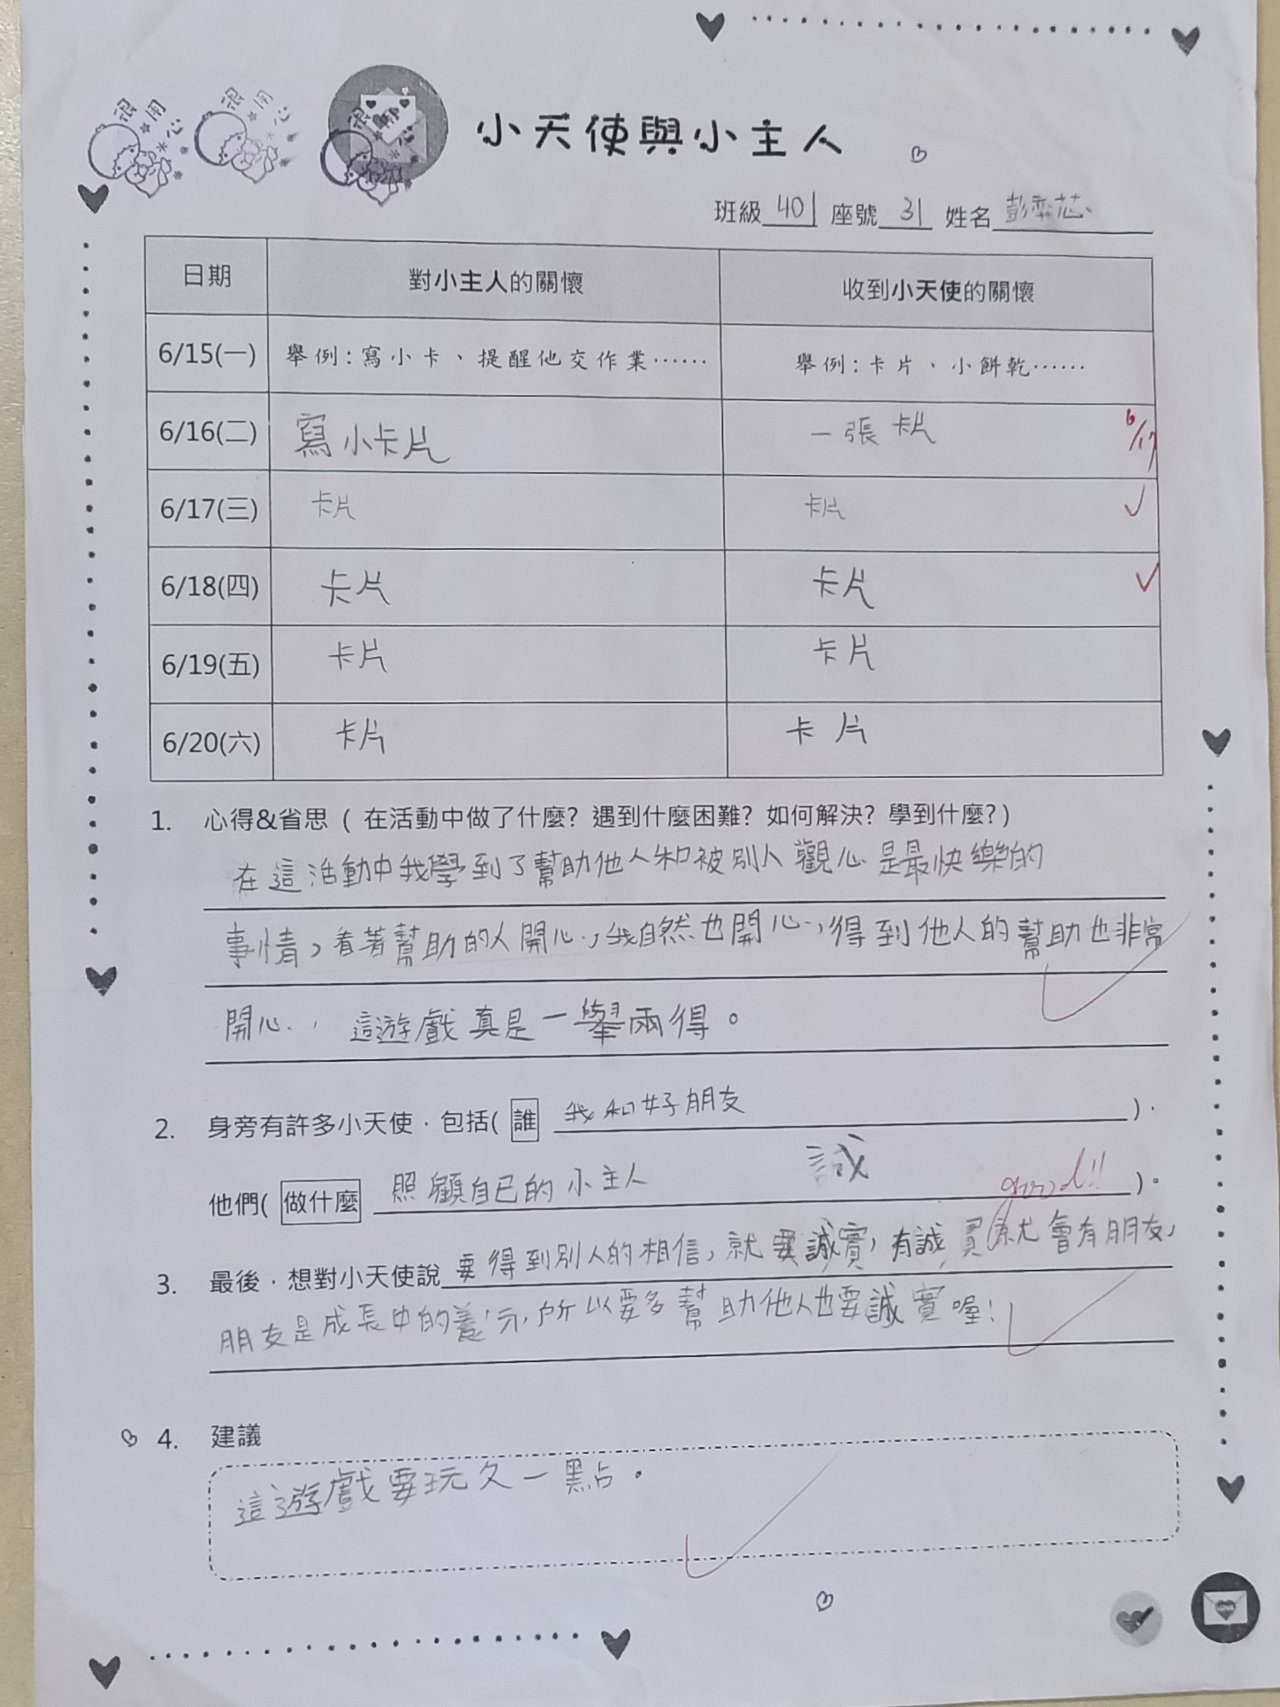 很用心
很用心
很用心
小天使與小主人
班級 401 座號 31 姓名 彭奕芯
日期 對小主人的關懷 收到小天使的關懷
6/15(一) 舉例:寫小卡、提醒他交作業⋯⋯ 舉例:卡片、小餅乾⋯⋯
6/16(二) 寫小卡片 一張卡片 6/17
6/17(三) 卡片 卡片
6/18(四) 卡片 卡片
6/19(五) 卡片 卡片
6/20(六) 卡片 卡片
1. 心得&省思(在活動中做了什麼?遇到什麼困難?如何解決?學到什麼?)
在這活動中我學到了幫助他人和被別人觀心是最快樂的
事情,看著幫助的人開心,我自然也開心,得到他人的幫助也非常
開心,這遊戲真是一舉兩得。
2. 身旁有許多小天使,包括(誰 我和好朋友),
他們(做什麼 照顧自己的小主人)。
誠
good!!
3. 最後,想對小天使說 要得到別人的相信,就要誠實,有誠實就會有朋友,
朋友是成長中的養分,所以要多幫助他人也要誠實喔!
4. 建議
這遊戲要玩久一點。